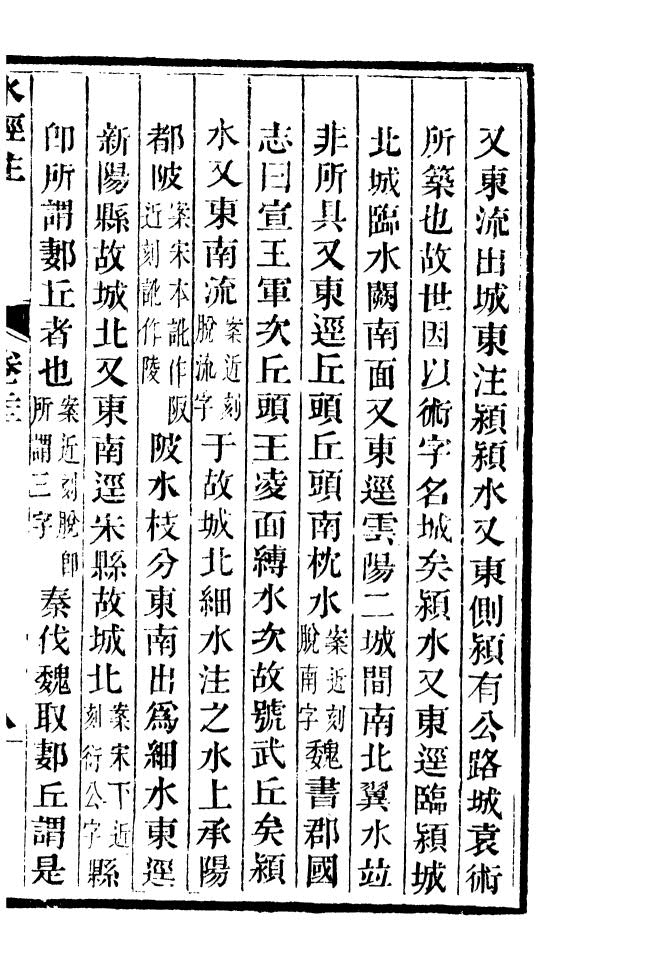 又東流出城東注潁潁水又東側潁有公路城袁術
所築也故世因以術字名城矣潁水又東逕臨潁城
北城臨水闕南面又東逕雲陽二城間南北翼水竝
非所具又東逕丘頭丘頭南枕水案近刻脫南字魏書郡國
志曰宣王軍次丘頭王凌面縛水次故號武丘矣潁
水又東南流案近刻脫流字于故城北細水注之水上承陽
都陂案宋本訛作阪近刻訛作陵陂水枝分東南出爲細水東逕
新陽縣故城北又東南逕宋縣故城北案宋下近刻衍公字縣
卽所謂郪丘者也案近刻脫卽所謂三字秦伐魏取郪丘謂是
水經注